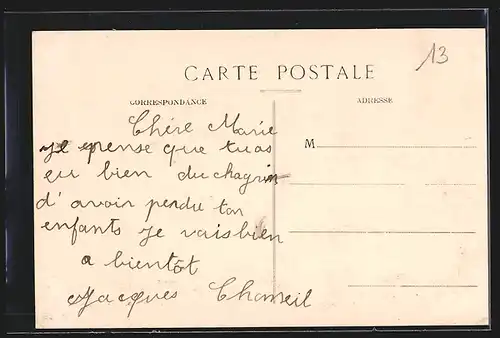 13
CARTE POSTALE
CORRESPONDANCE
ADRESSE
M
Chère Marie
je pense que tu as
eu bien du chagrin
d'avoir perdu ton
enfants je vais bien
a bientôt
Jacques